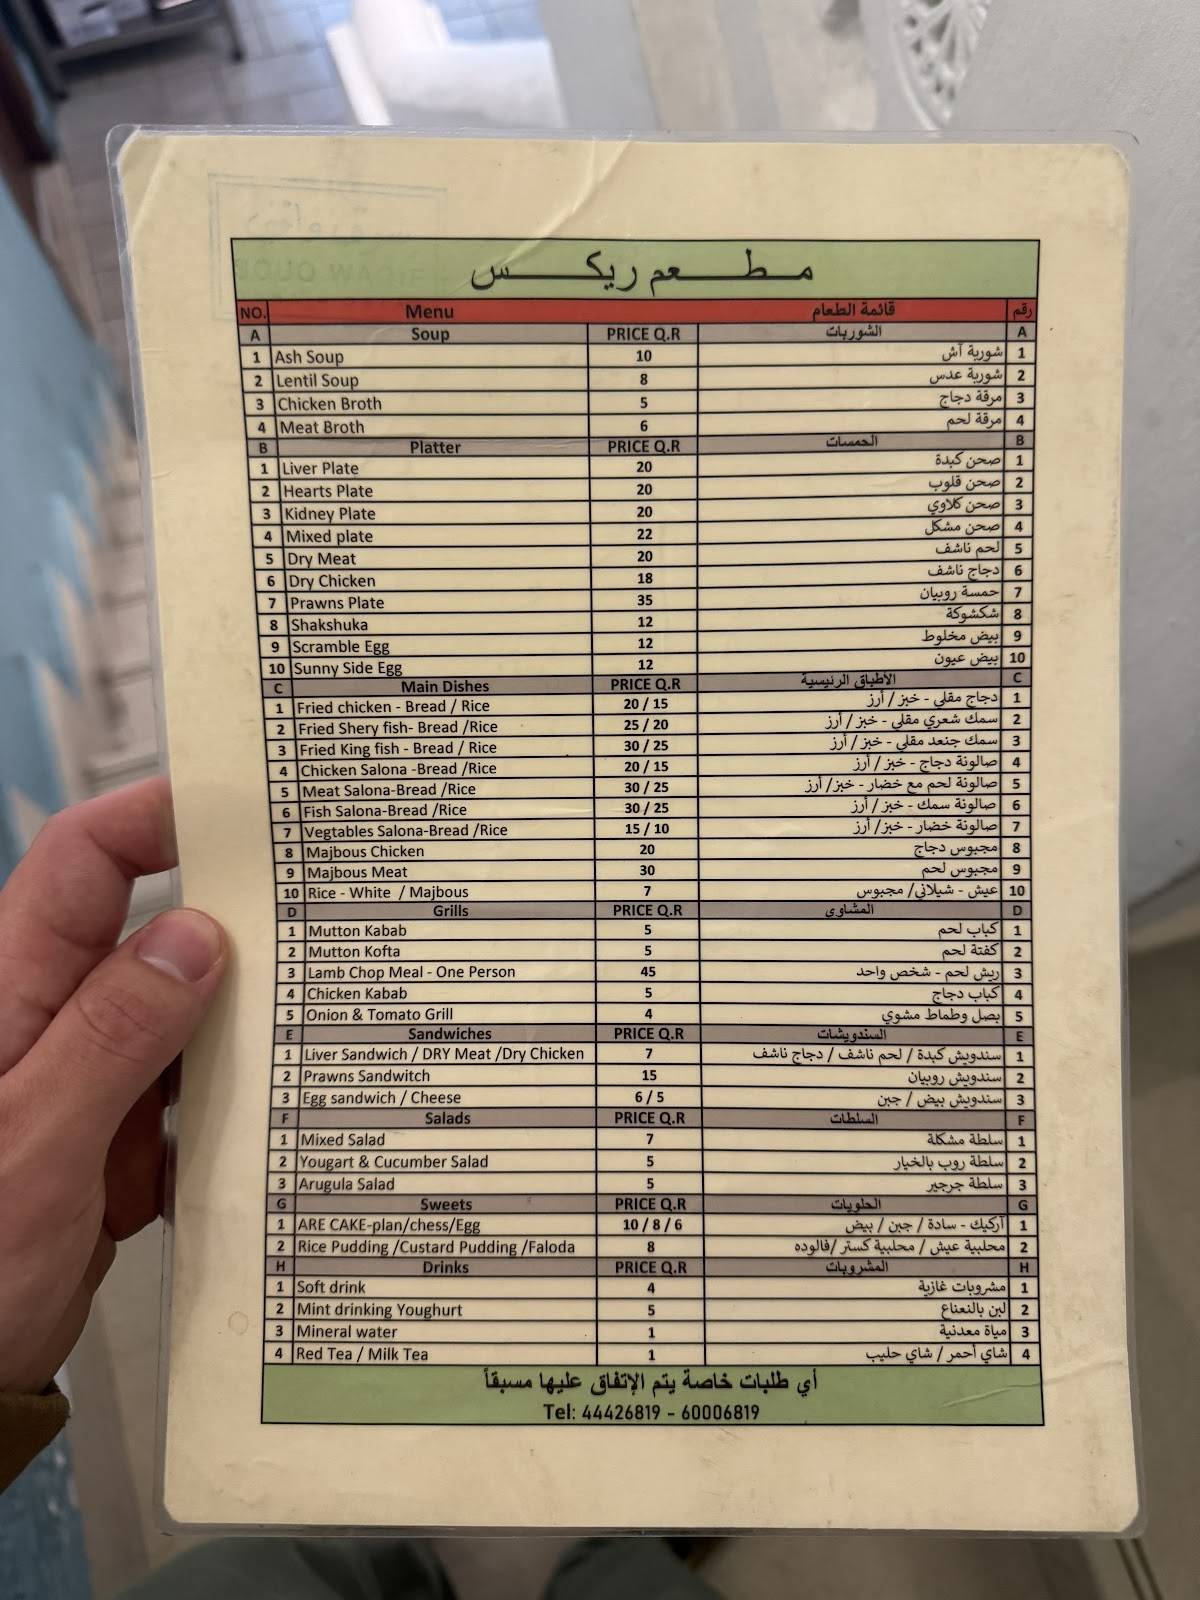 مطعم ريكس
NO. Menu قائمة الطعام رقم
A Soup PRICE Q.R الشوربات A
1 Ash Soup 10 شوربة آش 1
2 Lentil Soup 8 شوربة عدس 2
3 Chicken Broth 5 مرقة دجاج 3
4 Meat Broth 6 مرقة لحم 4
B Platter PRICE Q.R الحمسات B
1 Liver Plate 20 صحن كبدة 1
2 Hearts Plate 20 صحن قلوب 2
3 Kidney Plate 20 صحن كلاوي 3
4 Mixed plate 22 صحن مشكل 4
5 Dry Meat 20 لحم ناشف 5
6 Dry Chicken 18 دجاج ناشف 6
7 Prawns Plate 35 حمسة روبيان 7
8 Shakshuka 12 شكشوكة 8
9 Scramble Egg 12 بيض مخلوط 9
10 Sunny Side Egg 12 بيض عيون 10
C Main Dishes PRICE Q.R الأطباق الرئيسية C
1 Fried chicken - Bread / Rice 20 / 15 دجاج مقلي - خبز / أرز 1
2 Fried Shery fish- Bread /Rice 25 / 20 سمك شعري مقلي - خبز / أرز 2
3 Fried King fish - Bread /Rice 30 / 25 سمك جنعد مقلي - خبز / أرز 3
4 Chicken Salona -Bread /Rice 20 / 15 صالونة دجاج - خبز / أرز 4
5 Meat Salona-Bread /Rice 30 / 25 صالونة لحم مع خضار - خبز/ أرز 5
6 Fish Salona-Bread /Rice 30 / 25 صالونة سمك - خبز / أرز 6
7 Vegtables Salona-Bread /Rice 15 / 10 صالونة خضار - خبز/ أرز 7
8 Majbous Chicken 20 مجبوس دجاج 8
9 Majbous Meat 30 مجبوس لحم 9
10 Rice - White / Majbous 7 عيش - شيلاني/ مجبوس 10
D Grills PRICE Q.R المشاوي D
1 Mutton Kabab 5 كباب لحم 1
2 Mutton Kofta 5 كفتة لحم 2
3 Lamb Chop Meal - One Person 45 ريش لحم - شخص واحد 3
4 Chicken Kabab 5 كباب دجاج 4
5 Onion & Tomato Grill 4 بصل وطماط مشوي 5
E Sandwiches PRICE Q.R السندويشات E
1 Liver Sandwich / DRY Meat /Dry Chicken 7 سندويش كبدة / لحم ناشف / دجاج ناشف 1
2 Prawns Sandwitch 15 سندويش روبيان 2
3 Egg sandwich / Cheese 6 / 5 سندويش بيض / جبن 3
F Salads PRICE Q.R السلطات F
1 Mixed Salad 7 سلطة مشكلة 1
2 Yougart & Cucumber Salad 5 سلطة روب بالخيار 2
3 Arugula Salad 5 سلطة جرجير 3
G Sweets PRICE Q.R الحلويات G
1 ARE CAKE-plan/chess/Egg 10 / 8 / 6 آركيك - سادة / جبن / بيض 1
2 Rice Pudding /Custard Pudding /Faloda 8 محلبية عيش / محلبية كستر /فالوده 2
H Drinks PRICE Q.R المشروبات H
1 Soft drink 4 مشروبات غازية 1
2 Mint drinking Youghurt 5 لبن بالنعناع 2
3 Mineral water 1 مياة معدنية 3
4 Red Tea / Milk Tea 1 شاي أحمر / شاي حليب 4
أي طلبات خاصة يتم الإتفاق عليها مسبقاً
Tel: 44426819 - 60006819